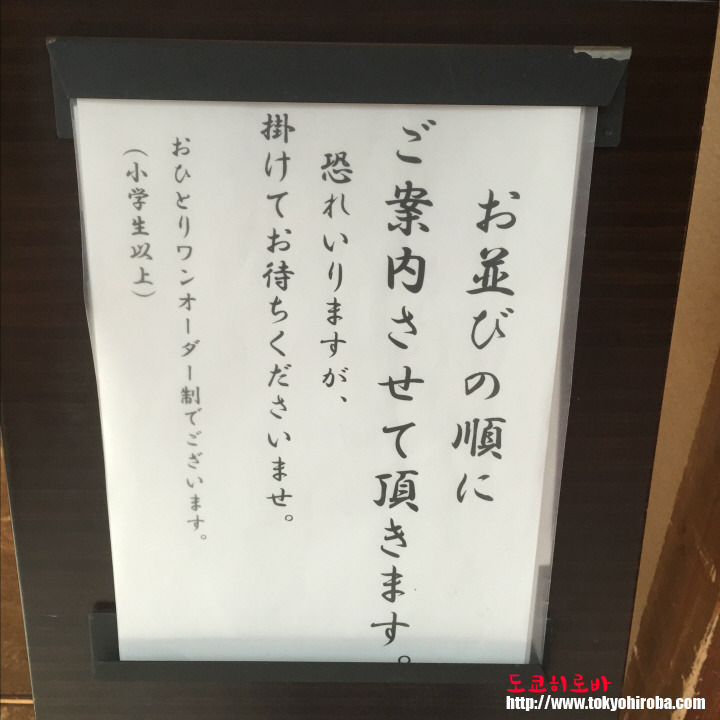 お並びの順に
ご案内させて頂きます。
恐れいりますが、
掛けてお待ちくださいませ。
おひとりワンオーダー制でございます。
（小学生以上）
도쿄히로바
http://www.tokyohiroba.com